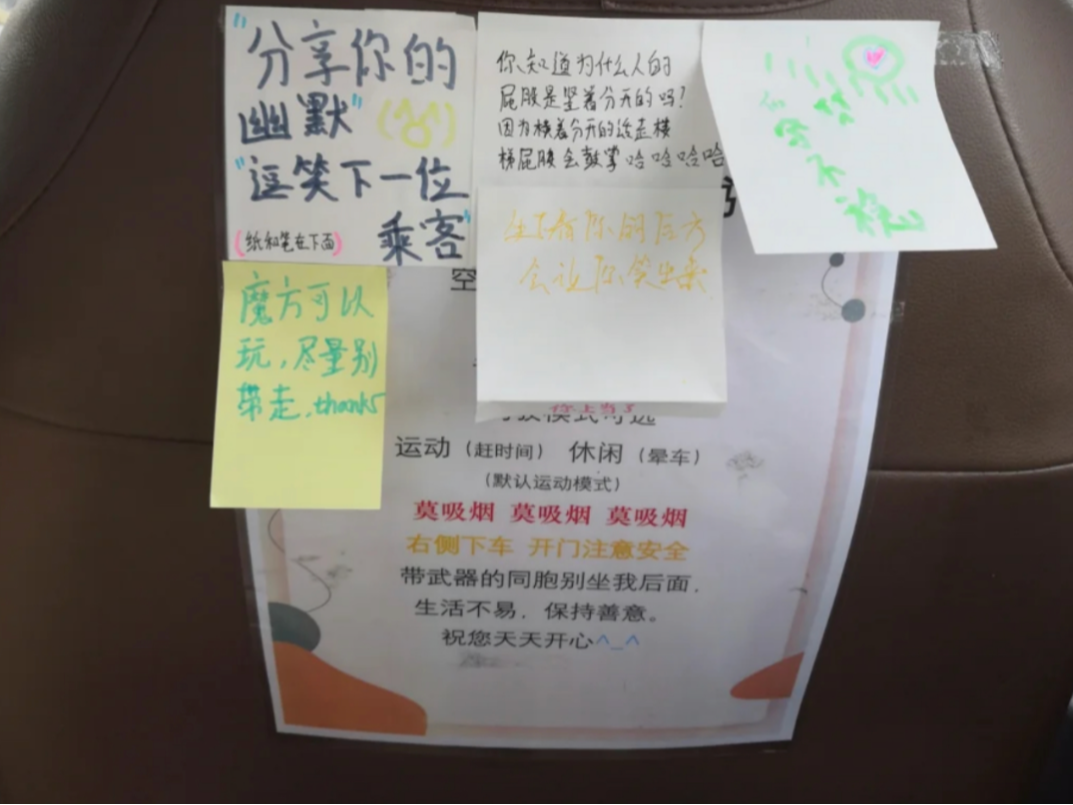 "分享你的
幽默"
"逗笑下一位
乘客"
(纸和笔在下面)
你知道为什么人的
屁股是竖着分开的吗?
因为横着分开的话走横
梯屁股会鼓掌哈哈哈哈
坐下看你的后方
会让你笑出来
字
不
稳
魔方可以
玩,尽量别
带走,thanks
空
你上当了
驾驶模式可选
运动(赶时间) 休闲(晕车)
(默认运动模式)
莫吸烟 莫吸烟 莫吸烟
右侧下车 开门注意安全
带武器的同胞别坐我后面,
生活不易,保持善意。
祝您天天开心^_^